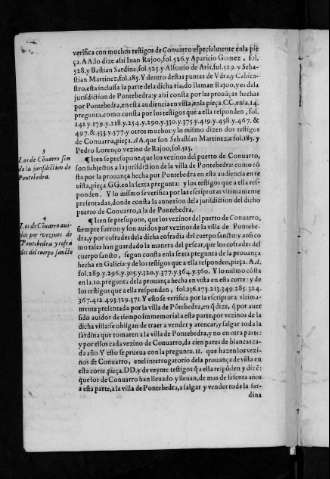 verifica con muchos testigos de Conuarro especialmente ẽla pie
ça. A A do dize assi Iuan Rajoo, fol. 526. y Aparicio Gomez. fol.
528. y Bastian Sardina, fol. 525 y Alfonso de Aris, fol. 529. y Seba-
stian Martinez, fol. 185. Y dentro destas puntas de Vdra, y Cabicas-
tro, esta inclusa la parte de la dicha
jurisdicion de Ponteuedra y assi consta por las prouãças hechas
por Ponteuedra, en esta audiencia en vista, en la pieça, CC. en la. 14.
pregunta, como consta por los testigos que a ella responden, fol.
pregunta, pieça. AA. que son Sebastian Martinez fol. 185. y
Pedro Lorenço vezino de Rajoo, fol. 325.
3
Los de Cõuarro son
de la jurisdiction de
Ponteuedra.
¶ Iten se presupone que los vezinos del puerto de Conuarro,
son subjectos a la jurisdicion de la villa de Ponteuedra: como cõ
sta por la prouança hecha por Ponteuedra en esta audiencia en re
vista, pieça, GG. en la sexta pregunta y los testigos que a ella res-
ponden. Y lo mismo se verifica por las escripturas vltimamente
presentadas, donde consta la annexion de la jurisdicion del dicho
puerto de Conuarro, a la de Ponteuedra.
4
Los de Cõuarro aui-
dos por vezinos de
Ponteuedra y cofra-
des del cuerpo sancto
¶ Iten se presupone, que los vezinos del puerto de Conuarro,
siempre fueron y son auidos por vezinos de la villa de Ponteue-
dra, y por cofrades de la dicha cofradia del cuerpo sancto y assi co
mo tales han guardado la manera del pescar, que los cofrades del
cuerpo sancto, segun consta en la sexta pregunta de la prouança
hecha en Galicia y de los testigos que a ella responden, pieça. A A.
fol. 289. y 296. y 305. y 320. y 377. y 364. y 360. Y lo mismo cõsta
en la. 10. pregunta de la prouança hecha en vista en esta corte: y de
los testigos que a ella responden, fol. 256. 273. 213. 249. 285. 324.
367. 412. 493. 529. 371. Y esto se verifica por la escriptura vltima-
mente presentada por la villa de Põteuedra, en q̃ dize, q̃ por auer
sido auidos de tiempo immemorial a esta parte, por vezinos de la
dicha villa: se obligan de traer a vender y atrencar, y salgar toda la
sardina que tomaren a la villa de Ponteuedra, y no en otra parte:
y por esso cada vezino de Conuarro, da cien pares de blancas ca-
da año. Y esso se prueua con la pregunta. 11. que hazen los vezi-
nos de Conuarro, en el interrogatorio de la prouança de vista en
esta corte, pieça. DD. y de veynte testigos q̃ a ella respõden y dizẽ:
que los de Conuarro han lleuado y lleuan, de mas de sesenta años
a esta parte, a la villa de Ponteuedra, a salgar y vender toda la sar-
dina